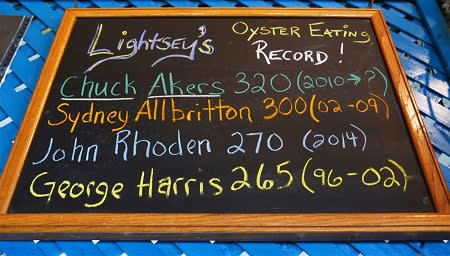 Lightsey's OYSTER EATING
RECORD!
Chuck Akers 320 (2010→?)
Sydney Allbritton 300 (02-09)
John Rhoden 270 (2014)
George Harris 265 (96-02)